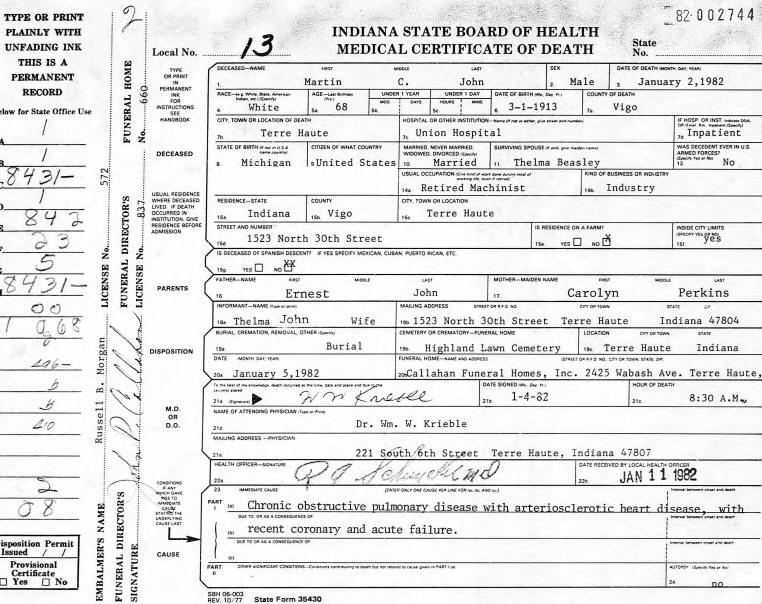 82-002744
TYPE OR PRINT
PLAINLY WITH
UNFADING INK
THIS IS A
PERMANENT
RECORD
Below for State Office Use
1
1
8431-
1
842
23
5
8431-
00
1 068
496-
b
b
410
2
08
Disposition Permit
Issued / /
Provisional
Certificate
☐ Yes ☐ No
2
FUNERAL HOME
No. 660
LICENSE No. 572
FUNERAL DIRECTOR'S
LICENSE No. 837
Russell B. Morgan
EMBALMER'S NAME
FUNERAL DIRECTOR'S
SIGNATURE
John R. Callahan
INDIANA STATE BOARD OF HEALTH
MEDICAL CERTIFICATE OF DEATH
Local No. 13
State
No.
TYPE
OR PRINT
IN
PERMANENT
INK
FOR
INSTRUCTIONS
SEE
HANDBOOK
DECEASED
USUAL RESIDENCE
WHERE DECEASED
LIVED. IF DEATH
OCCURRED IN
INSTITUTION, GIVE
RESIDENCE BEFORE
ADMISSION
PARENTS
DISPOSITION
M.D.
OR
D.O.
CONDITIONS
IF ANY
WHICH GAVE
RISE TO
IMMEDIATE
CAUSE
STATING THE
UNDERLYING
CAUSE LAST
CAUSE
DECEASED—NAME FIRST MIDDLE LAST SEX DATE OF DEATH (MONTH, DAY, YEAR)
1. Martin C. John 2. Male 3. January 2,1982
RACE—(e.g. White, Black, American Indian, etc.) (Specify) AGE—Last Birthday (Yrs.) UNDER 1 YEAR UNDER 1 DAY DATE OF BIRTH (Mo., Day, Yr.) COUNTY OF DEATH
MOS DAYS HOURS MINS
4. White 5a. 68 5b. 5c. 6. 3-1-1913 7a. Vigo
CITY, TOWN OR LOCATION OF DEATH HOSPITAL OR OTHER INSTITUTION—Name (If not in either, give street and number) IF HOSP OR INST. Indicate DOA, OP/Emer. Rm., Inpatient (Specify)
7b. Terre Haute 7c. Union Hospital 7d. Inpatient
STATE OF BIRTH (If not in U.S.A. name country) CITIZEN OF WHAT COUNTRY MARRIED, NEVER MARRIED, WIDOWED, DIVORCED (Specify) SURVIVING SPOUSE (If wife, give maiden name) WAS DECEDENT EVER IN U.S. ARMED FORCES? (Specify Yes or No)
8. Michigan 9. United States 10. Married 11. Thelma Beasley 12. No
USUAL OCCUPATION (Give kind of work done during most of working life, even if retired) KIND OF BUSINESS OR INDUSTRY
14a. Retired Machinist 14b. Industry
RESIDENCE—STATE COUNTY CITY, TOWN OR LOCATION
15a. Indiana 15b. Vigo 15c. Terre Haute
STREET AND NUMBER IS RESIDENCE ON A FARM? INSIDE CITY LIMITS (SPECIFY YES OR NO)
15d. 1523 North 30th Street 15e. YES ☐ NO X 15f. yes
IS DECEASED OF SPANISH DESCENT? IF YES SPECIFY MEXICAN, CUBAN, PUERTO RICAN, ETC.
15g. YES ☐ NO XX
FATHER—NAME FIRST MIDDLE LAST MOTHER—MAIDEN NAME FIRST MIDDLE LAST
16. Ernest John 17. Carolyn Perkins
INFORMANT—NAME (Type or print) MAILING ADDRESS STREET OR R.F.D. NO. CITY OR TOWN STATE ZIP
18a. Thelma John Wife 18b. 1523 North 30th Street Terre Haute Indiana 47804
BURIAL, CREMATION, REMOVAL, OTHER (Specify) CEMETERY OR CREMATORY—FUNERAL HOME LOCATION CITY OR TOWN STATE
19a. Burial 19b. Highland Lawn Cemetery 19c. Terre Haute Indiana
DATE (MONTH, DAY, YEAR) FUNERAL HOME—NAME AND ADDRESS (STREET OR R.F.D. NO., CITY OR TOWN, STATE, ZIP)
20a. January 5,1982 20b. Callahan Funeral Homes, Inc. 2425 Wabash Ave. Terre Haute,
To the best of my knowledge, death occurred at the time, date and place and due to the cause(s) stated DATE SIGNED (Mo., Day, Yr.) HOUR OF DEATH
21a. (Signature) W W Krieble 21b. 1-4-82 21c. 8:30 A.M. M
NAME OF ATTENDING PHYSICIAN (Type or Print)
21d. Dr. Wm. W. Krieble
MAILING ADDRESS—PHYSICIAN
21e. 221 South 6th Street Terre Haute, Indiana 47807
HEALTH OFFICER—SIGNATURE DATE RECEIVED BY LOCAL HEALTH OFFICER
22a. MD 22b. JAN 11 1982
23. IMMEDIATE CAUSE [ENTER ONLY ONE CAUSE PER LINE FOR (a), (b), AND (c).] Interval between onset and death
PART I (a) Chronic obstructive pulmonary disease with arteriosclerotic heart disease, with
DUE TO, OR AS A CONSEQUENCE OF Interval between onset and death
(b) recent coronary and acute failure.
DUE TO, OR AS A CONSEQUENCE OF Interval between onset and death
(c)
PART II OTHER SIGNIFICANT CONDITIONS—Conditions contributing to death but not related to cause given in PART I (a) AUTOPSY (Specify Yes or No)
24. no
SBH 06-003
REV. 10/77 State Form 35430